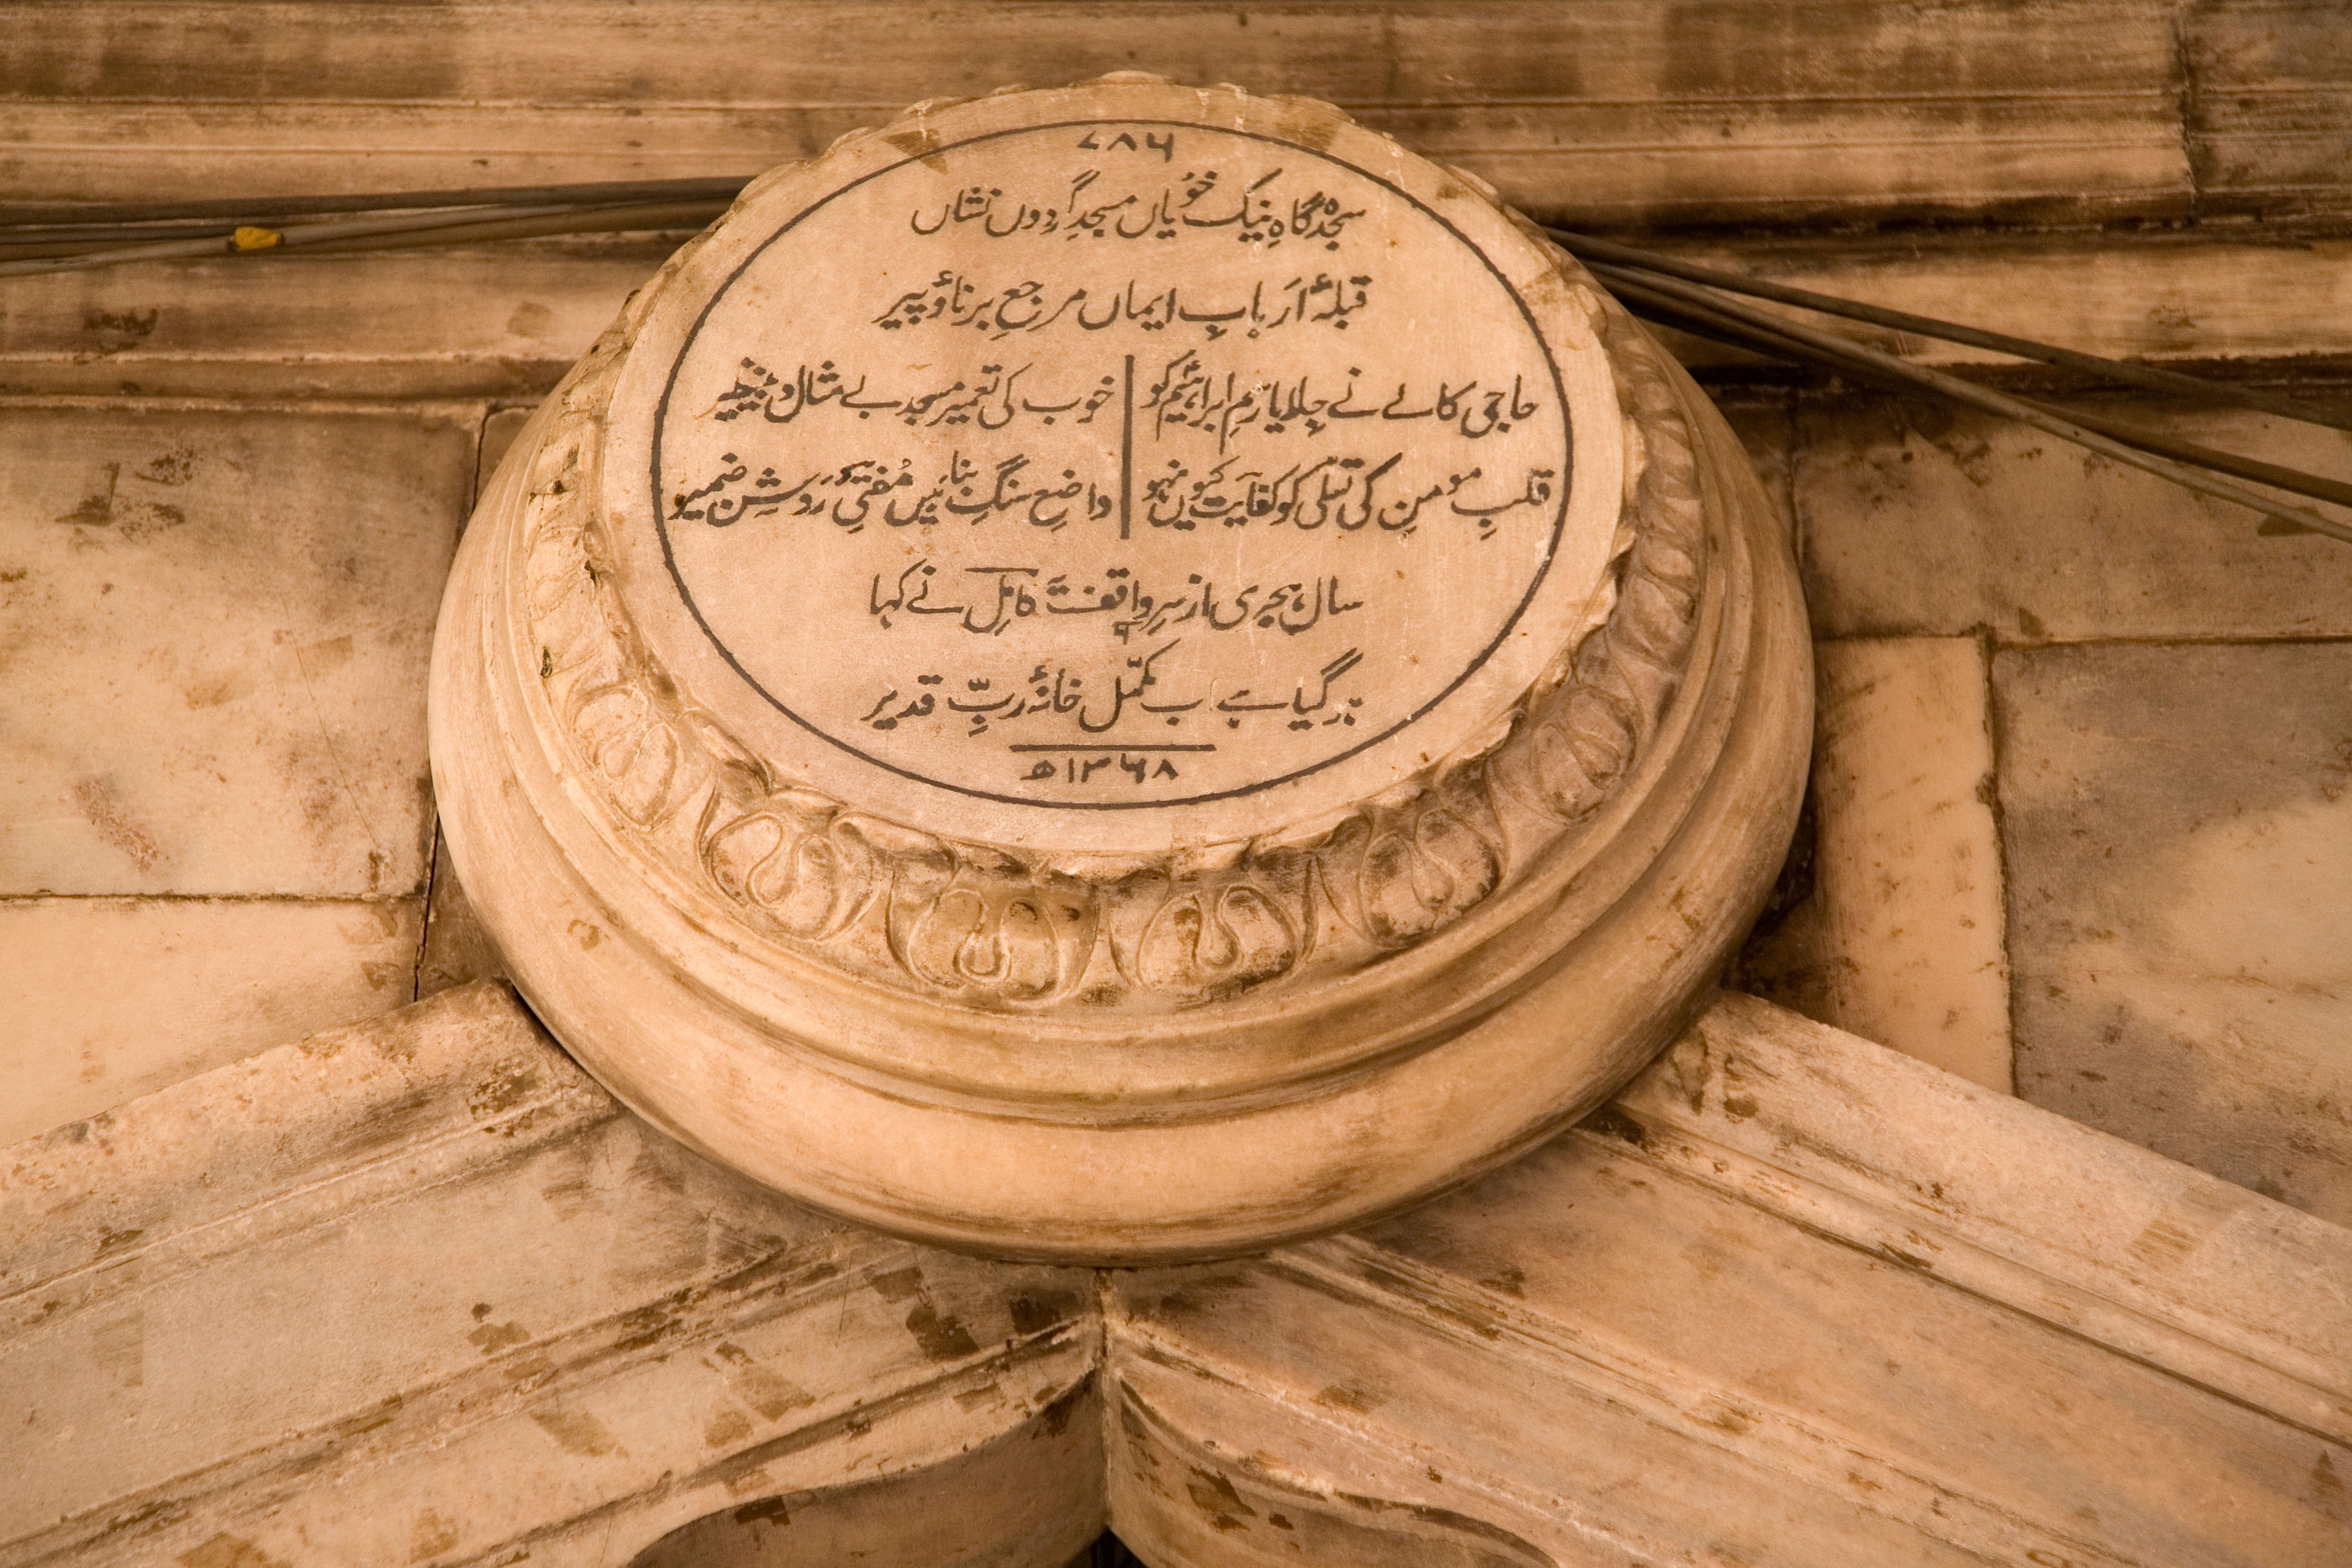 ۷۸۶
سجدہ گاہِ نیک خُویاں مسجدِ گردوں نشاں
قبلۂ اَربابِ ایماں مرجعِ برناؤ پیر
حاجی کالے نے جِلایا رَمِ ابراہیمؑ کو خوب کی تعمیر مسجد بے مثال و بے نظیر
قلبِ مومن کی تسلّی کو کفایت کیوں نہو واضعِ سنگِ بنا ہیں مُفتیِٔ رَوشِن ضمیر
سال ہجری از سرِ واقفؔ کامِلؔ نے کہا
ہو گیا ہے اب مکمّل خانۂ ربِّ قدیر
۱۳۶۸ھ